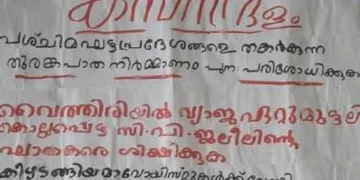 കബനിദളം
പശ്ചിമഘട്ടപ്രദേശങ്ങളെ തകർക്കുന്ന
തുരങ്കപാത നിർമ്മാണം പുനഃ പരിശോധിക്കുക
വൈത്തിരിയിൽ വ്യാജ ഏറ്റുമുട്ടലി
കൊല്ലപ്പെട്ട സി.പി.ജലീലിന്റെ
ഘാതകരെ ശിക്ഷിക്കുക
കീഴടങ്ങിയമാവോയിസ്റ്റുകൾക്ക്